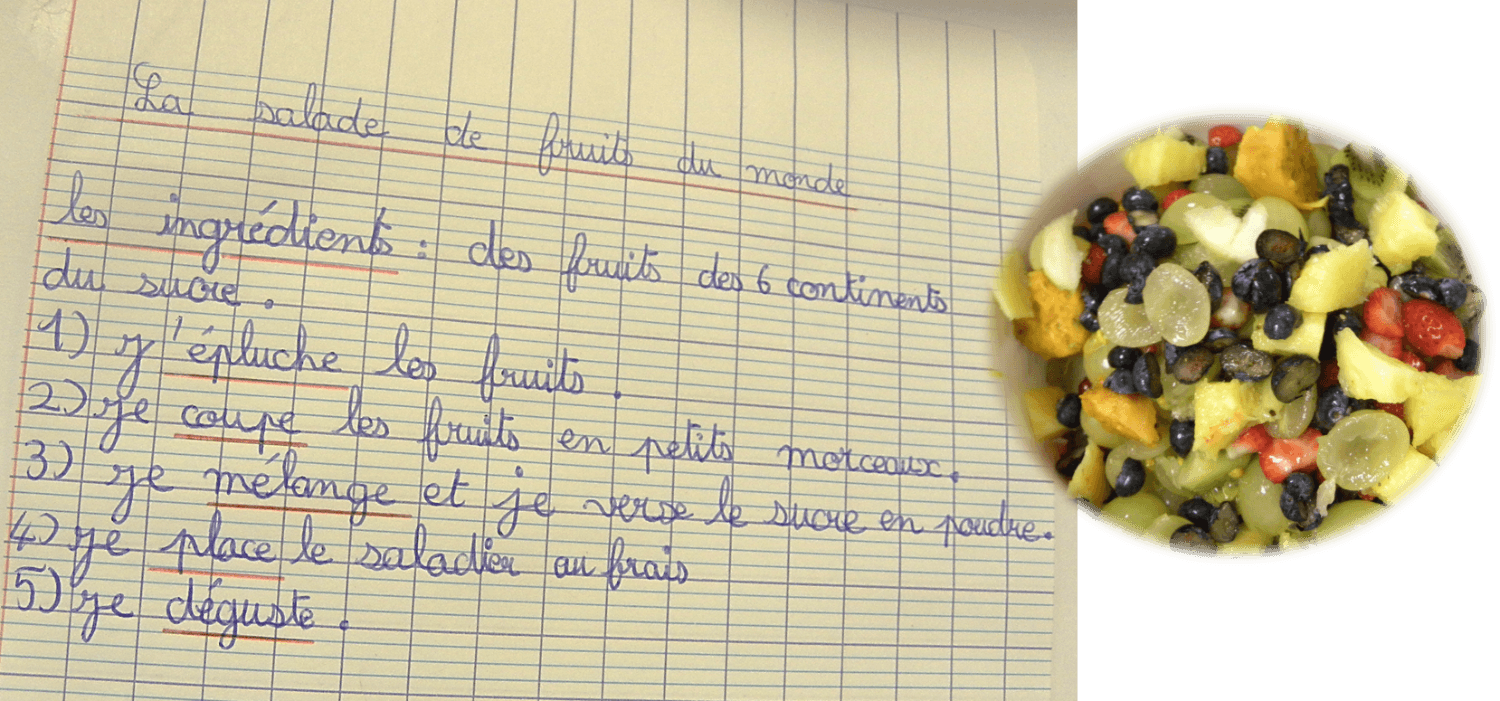 La salade de fruits du monde
les ingrédients : des fruits des 6 continents
du sucre.
1) J'épluche les fruits.
2) Je coupe les fruits en petits morceaux.
3) Je mélange et je verse le sucre en poudre.
4) Je place le saladier au frais
5) Je déguste.